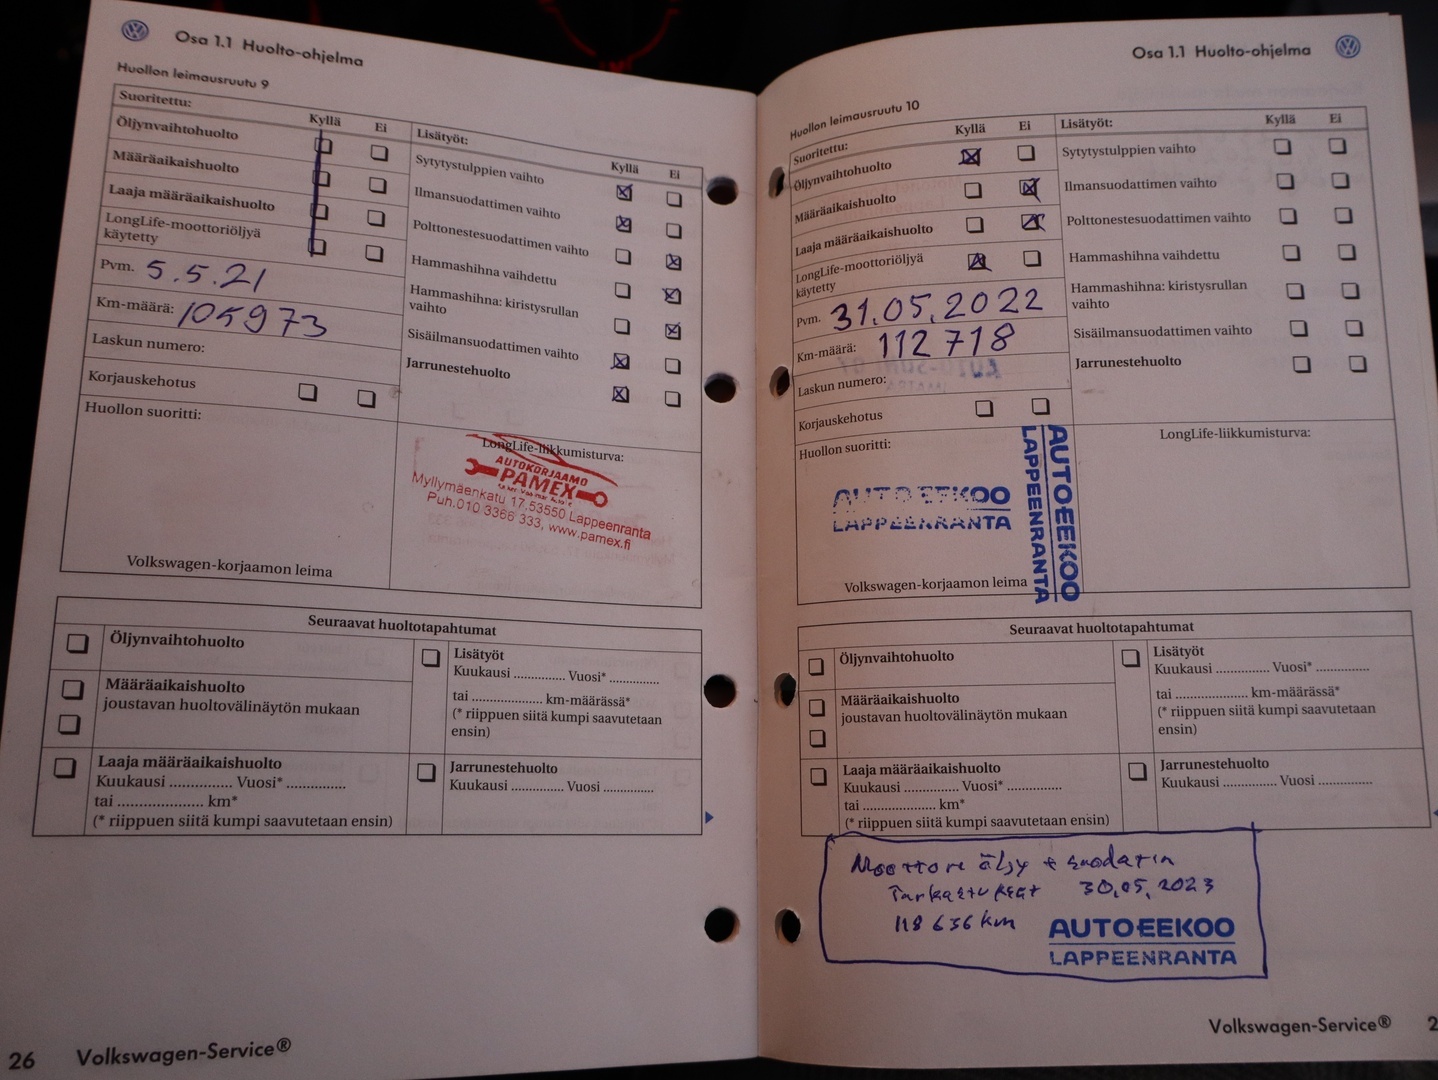 Osa 1.1 Huolto-ohjelma
Huollon leimausruutu 9
Suoritettu:
Kyllä Ei
Öljynvaihtohuolto
Määräaikaishuolto
Laaja määräaikaishuolto
LongLife-moottoriöljyä
käytetty
Pvm. 5.5.21
Km-määrä: 105973
Laskun numero:
Korjauskehotus
Huollon suoritti:
Volkswagen-korjaamon leima
Lisätyöt:
Kyllä Ei
Sytytystulppien vaihto
Ilmansuodattimen vaihto
Polttonestesuodattimen vaihto
Hammashihna vaihdettu
Hammashihna: kiristysrullan
vaihto
Sisäilmansuodattimen vaihto
Jarrunestehuolto
LongLife-liikkumisturva:
AUTOKORJAAMO
PAMEX
Myllymäenkatu 17,53550 Lappeenranta
Puh.010 3366 333, www.pamex.fi
Seuraavat huoltotapahtumat
Öljynvaihtohuolto
Määräaikaishuolto
joustavan huoltovälinäytön mukaan
Laaja määräaikaishuolto
Kuukausi .............. Vuosi* ..............
tai .................... km*
(* riippuen siitä kumpi saavutetaan ensin)
Lisätyöt
Kuukausi .............. Vuosi* ..............
tai .................... km-määrässä*
(* riippuen siitä kumpi saavutetaan
ensin)
Jarrunestehuolto
Kuukausi .............. Vuosi ..............
26 Volkswagen-Service®
Osa 1.1 Huolto-ohjelma
Huollon leimausruutu 10
Suoritettu:
Kyllä Ei
Öljynvaihtohuolto
Määräaikaishuolto
Laaja määräaikaishuolto
LongLife-moottoriöljyä
käytetty
Pvm. 31.05.2022
Km-määrä: 112 718
Laskun numero:
Korjauskehotus
Huollon suoritti:
AUTOEEKOO
LAPPEENRANTA
AUTOEEKOO
LAPPEENRANTA
Volkswagen-korjaamon leima
Lisätyöt:
Kyllä Ei
Sytytystulppien vaihto
Ilmansuodattimen vaihto
Polttonestesuodattimen vaihto
Hammashihna vaihdettu
Hammashihna: kiristysrullan
vaihto
Sisäilmansuodattimen vaihto
Jarrunestehuolto
LongLife-liikkumisturva:
Seuraavat huoltotapahtumat
Öljynvaihtohuolto
Määräaikaishuolto
joustavan huoltovälinäytön mukaan
Laaja määräaikaishuolto
Kuukausi .............. Vuosi* ..............
tai .................... km*
(* riippuen siitä kumpi saavutetaan ensin)
Lisätyöt
Kuukausi .............. Vuosi* ..............
tai .................... km-määrässä*
(* riippuen siitä kumpi saavutetaan
ensin)
Jarrunestehuolto
Kuukausi .............. Vuosi ..............
Moottori öljy + suodatin
Tarkastukset 30.05.2023
118 636 km
AUTOEEKOO
LAPPEENRANTA
Volkswagen-Service®